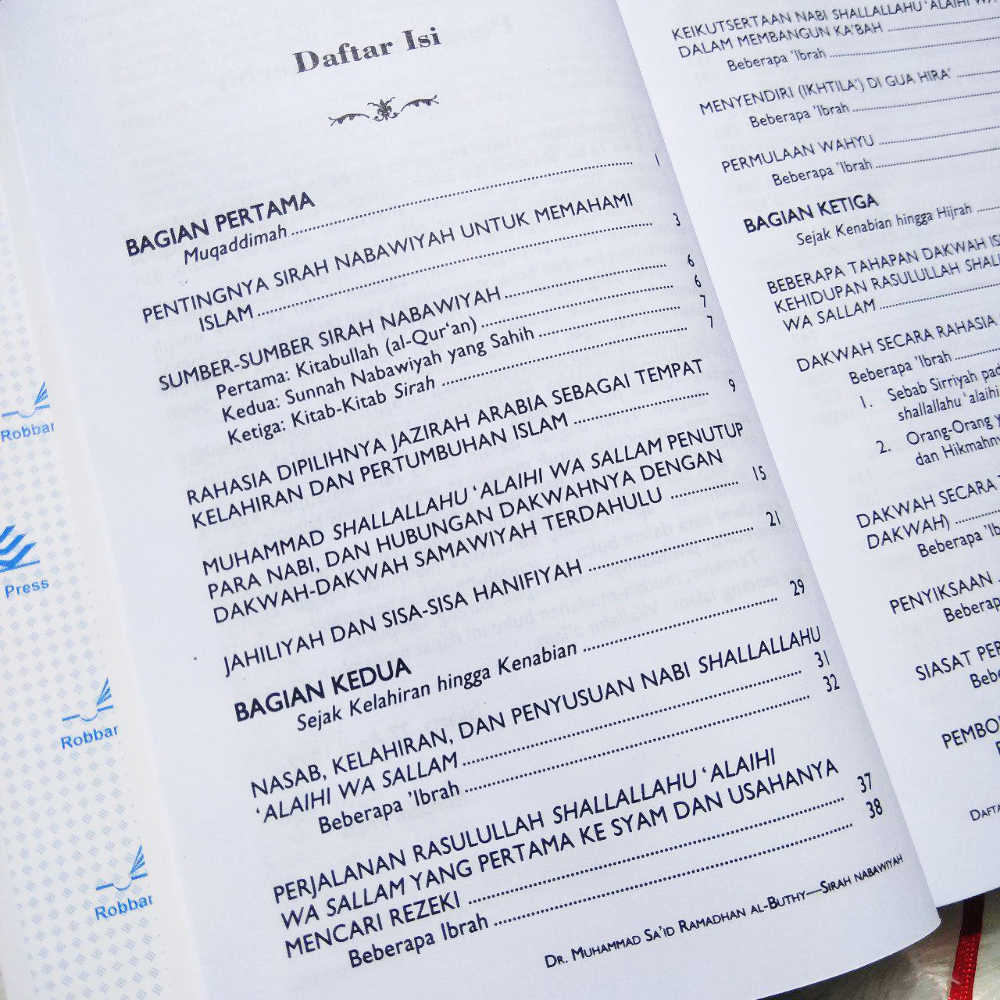 Daftar Isi
BAGIAN PERTAMA
Muqaddimah ........ 1
PENTINGNYA SIRAH NABAWIYAH UNTUK MEMAHAMI
ISLAM ........ 3
SUMBER-SUMBER SIRAH NABAWIYAH ........ 6
Pertama: Kitabullah (al-Qur'an) ........ 6
Kedua: Sunnah Nabawiyah yang Sahih ........ 7
Ketiga: Kitab-Kitab Sirah ........ 7
RAHASIA DIPILIHNYA JAZIRAH ARABIA SEBAGAI TEMPAT
KELAHIRAN DAN PERTUMBUHAN ISLAM ........ 9
MUHAMMAD SHALLALLAHU 'ALAIHI WA SALLAM PENUTUP
PARA NABI, DAN HUBUNGAN DAKWAHNYA DENGAN
DAKWAH-DAKWAH SAMAWIYAH TERDAHULU ........ 15
JAHILIYAH DAN SISA-SISA HANIFIYAH ........ 21
BAGIAN KEDUA
Sejak Kelahiran hingga Kenabian ........ 29
NASAB, KELAHIRAN, DAN PENYUSUAN NABI SHALLALLAHU
'ALAIHI WA SALLAM ........ 31
Beberapa 'Ibrah ........ 32
PERJALANAN RASULULLAH SHALLALLAHU 'ALAIHI
WA SALLAM YANG PERTAMA KE SYAM DAN USAHANYA
MENCARI REZEKI ........ 37
Beberapa Ibrah ........ 38
DR. MUHAMMAD SA'ID RAMADHAN AL-BUTHY—SIRAH NABAWIYAH
KEIKUTSERTAAN NABI SHALLALLAHU 'ALAIHI WA
DALAM MEMBANGUN KA'BAH ........
Beberapa 'Ibrah ........
MENYENDIRI (IKHTILA') DI GUA HIRA' ........
Beberapa 'Ibrah ........
PERMULAAN WAHYU ........
Beberapa 'Ibrah ........
BAGIAN KETIGA
Sejak Kenabian hingga Hijrah ........
BEBERAPA TAHAPAN DAKWAH IS
KEHIDUPAN RASULULLAH SHAL
WA SALLAM ........
DAKWAH SECARA RAHASIA
Beberapa 'Ibrah ........
1. Sebab Sirriyah pad
shallallahu 'alaihi
2. Orang-Orang y
dan Hikmahn
DAKWAH SECARA T
DAKWAH) ........
Beberapa 'Ib
PENYIKSAAN
Beberap
SIASAT PER
Beb
PEMBO
DAFTA
Robbar
Press
Robbar
Robbar